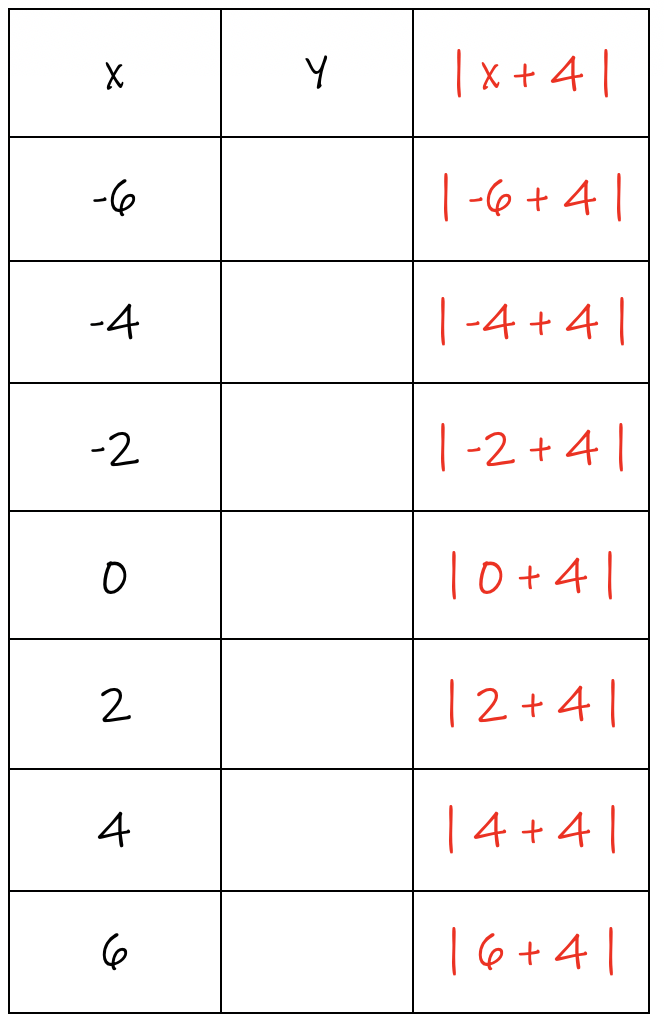 x y | x + 4 |
-6 | -6 + 4 |
-4 | -4 + 4 |
-2 | -2 + 4 |
0 | 0 + 4 |
2 | 2 + 4 |
4 | 4 + 4 |
6 | 6 + 4 |